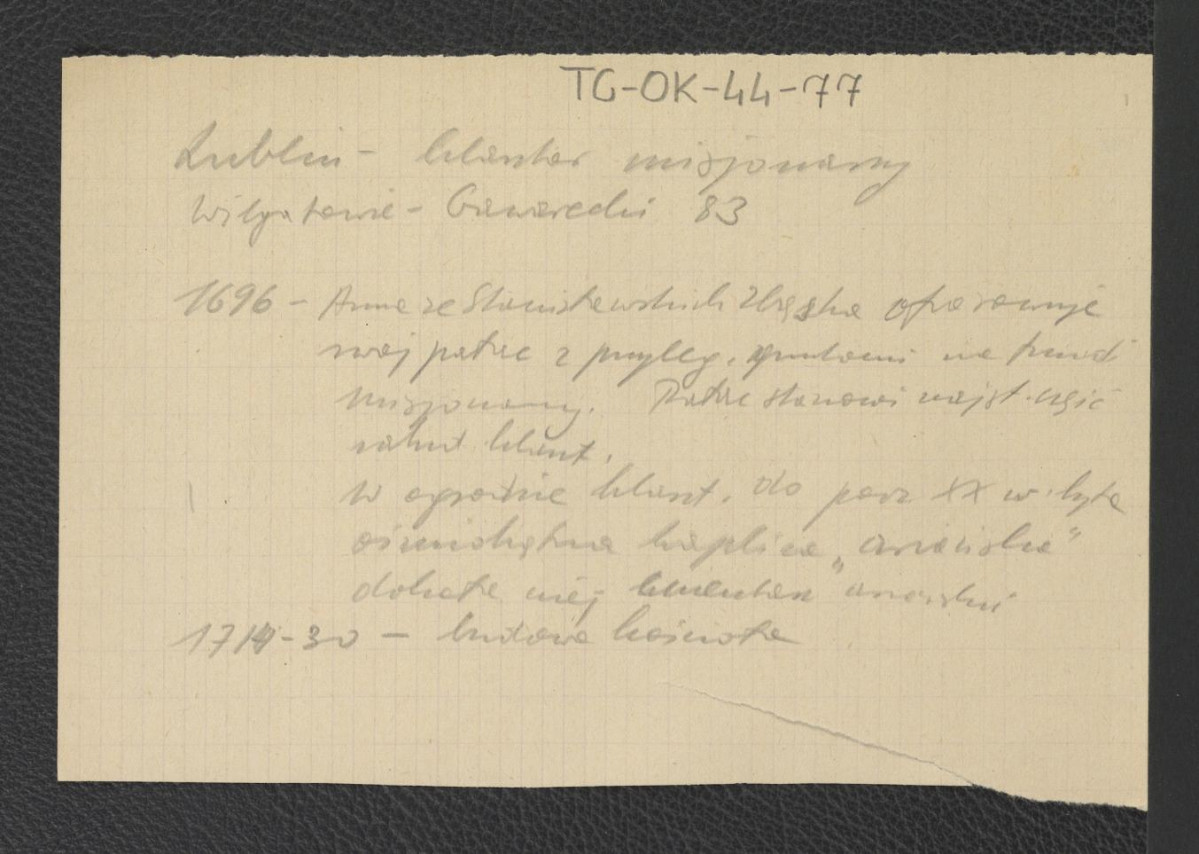 TG-OK-44-77
Lublin - klasztor misjonarzy
Wilgatowie - Gawarecki 83
1696 - Anna ze Staniszewskich Zbąska ofiarowuje
swój pałac z przyleg. gruntami na fund.
misjonarzy. Pałac stanowi najst. część
klaszt.
w ogrodzie klaszt. do pocz XX w. była
ośmiokątna kaplica „ariańska”
dokoła niej cmentarz ariański
1714-30 - budowa kościoła